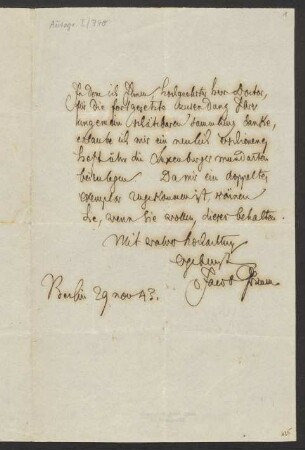 In dem ich Ihnen, hochgeehrter herr Doctor,
für die fortgesetzte zusendung Ihrer
ungemein schätzbaren sammlung danke,
erlaube ich mir ein neulich erschienenes
heft über die Luxenburger mundarten
beizulegen. Da mir ein doppeltes
exemplar zugekommen ist, können
Sie, wenn Sie wollen, dieses behalten.
Mit wahrer hochachtung
ergebenst
Jacob Grimm
Berlin 29 nov 43.